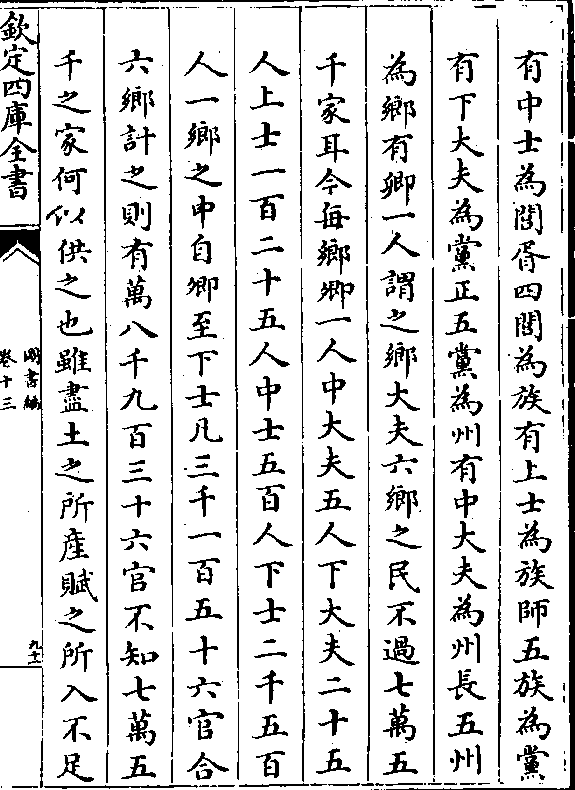 有中士為閭胥四閭為族有上士為族師五族為黨
有下大夫為黨正五黨為州有中大夫為州長五州
為鄉有卿一人謂之鄉大夫六鄉之民不過七萬五
千家耳今每鄉卿一人中大夫五人下大夫二十五
人上士一百二十五人中士五百人下士二千五百
人一鄉之中自卿至下士凡三千一百五十六官合
六鄉計之則有萬八千九百三十六官不知七萬五
千之家何以供之也雖盡土之所産賦之所入不足
欽定四庫全書
圖書編
卷十三
九十二